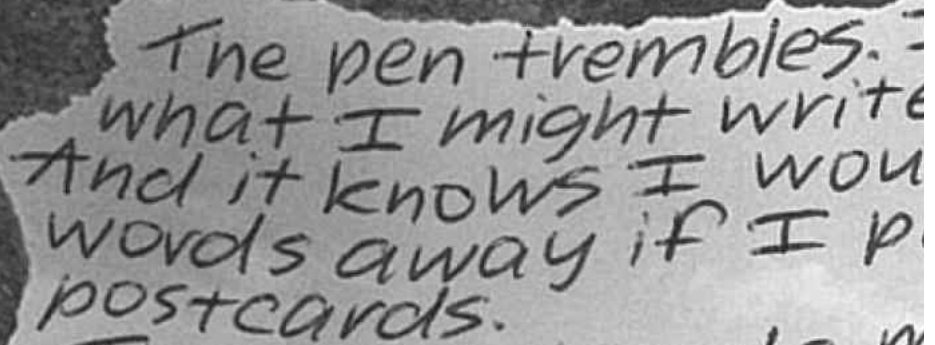 The pen trembles.
what I might write
And it knows I
words away if I
postcards.